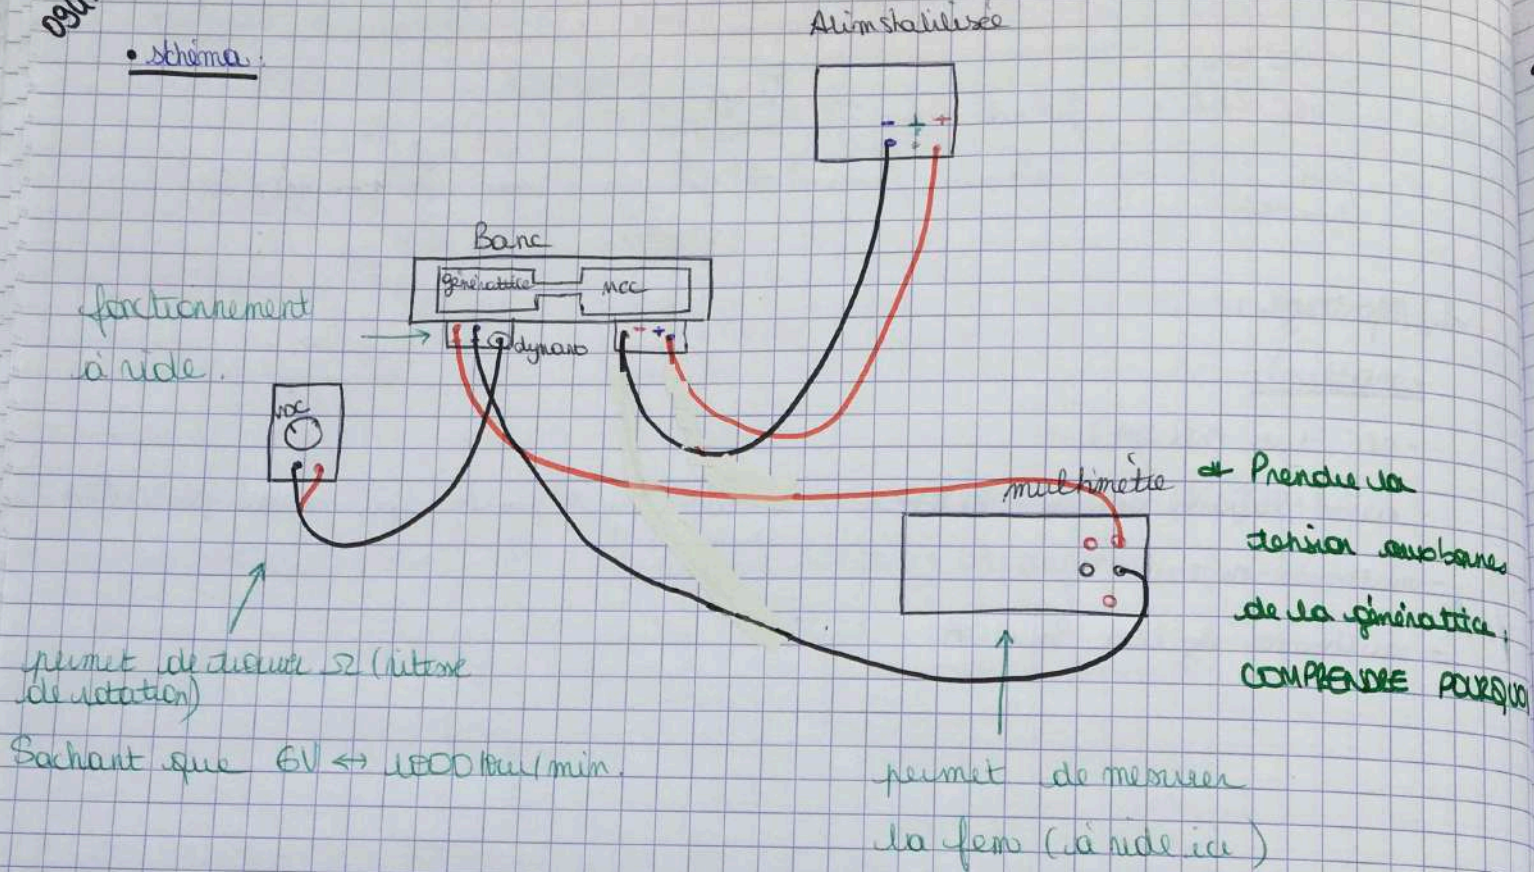 090
• schéma.
Alim stabilisée
- +
Banc
génératrice
MCC
fonctionnement
à vide.
dynamo
- +
VDC
multimètre
* Prendre la
tension aux bornes
de la génératrice.
COMPRENDRE POURQUOI
permet de trouver Ω (vitesse
de rotation)
Sachant que 6V ↔ 1000 tour/min.
permet de mesurer
la fem (à vide ici)